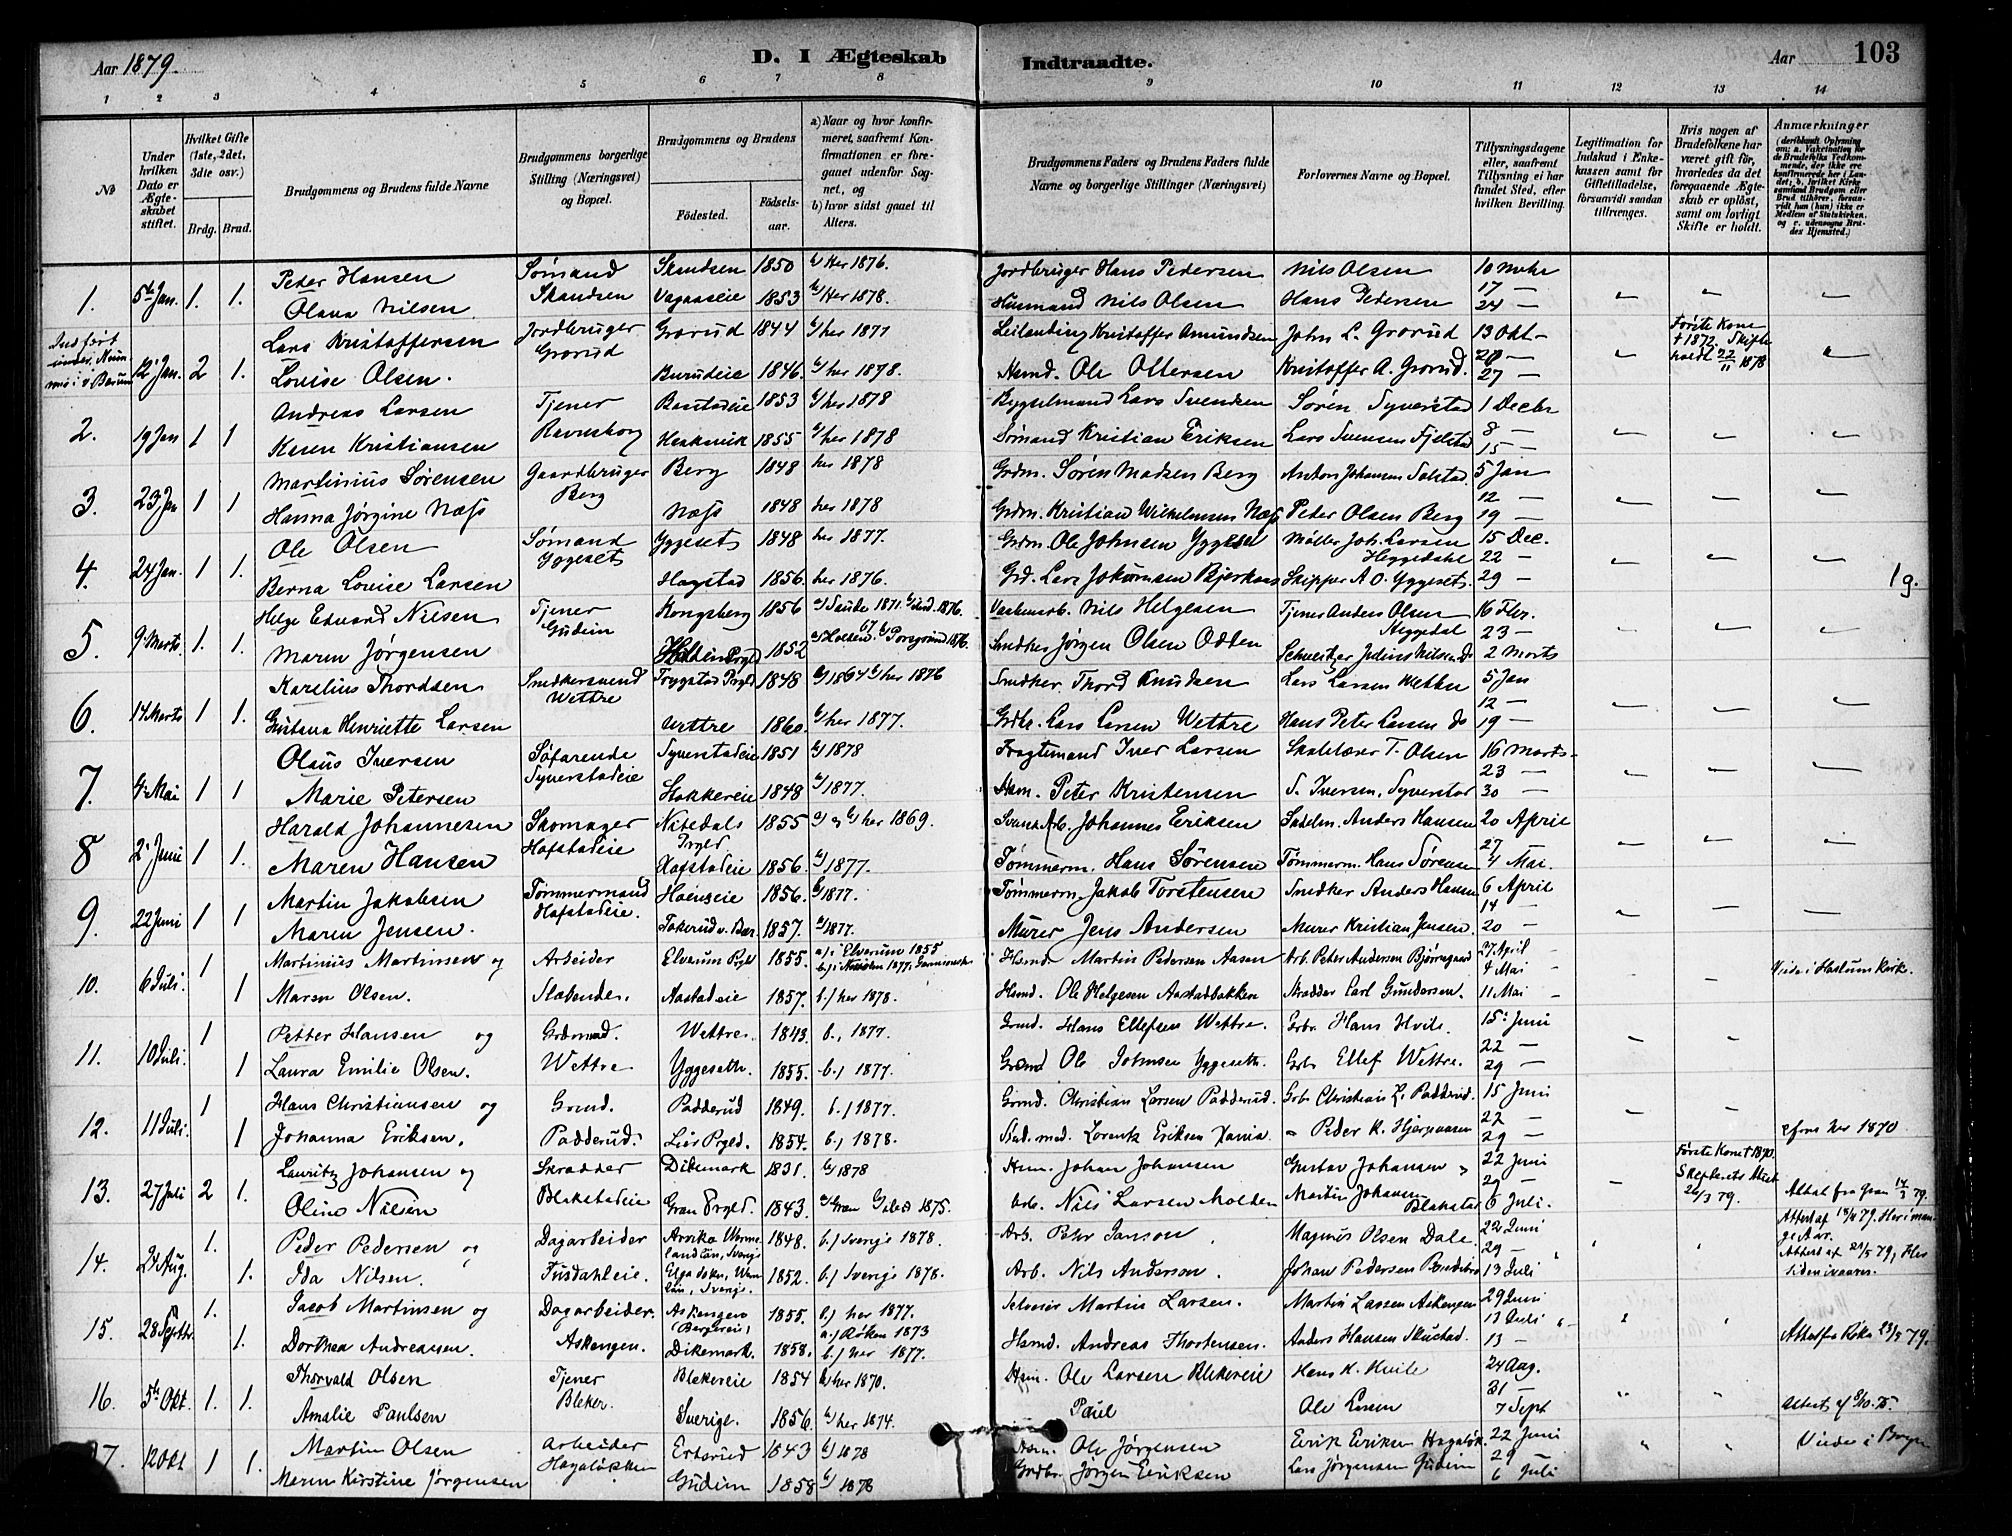 Aar 1879.
D. I Ægteskab Indtraadte.
Aar
103
1 2 3 4 5 6 7 8 9 10 11 12 13 14
No
Under hvilken Dato er Ægteskabet stiftet.
Hvilket Gifte (1ste, 2det, 3die osv.)
Brdg. Brud.
Brudgommens og Brudens fulde Navne
Brudgommens borgerlige Stilling (Næringsvei) og Bopæl.
Brudgommens og Brudens
Fødested.
Fødselsaar.
a) Naar og hvor konfirmeret, saafremt Konfirmationen er foregaaet udenfor Sognet, og
b) hvor sidst gaaet til Alters.
Brudgommens Faders og Brudens Faders fulde Navne og borgerlige Stillinger (Næringsvei)
Forlovernes Navne og Bopæl.
Tillysningsdagene eller, saafremt Tillysning ei har fundet Sted, efter hvilken Bevilling.
Legitimation for Indskud i Enkekassen samt for Giftetilladelse, forsaavidt saadan tiltrænges.
Hvis nogen af Brudefolkene har været gift før, hvorledes da det foregaaende Ægteskab er opløst, samt om lovligt Skifte er holdt.
Anmærkninger
1. 5te Jan. 1. 1. Peder Hansen Sømand Skandsen 1850 b) Her 1876. Jordbruger Hans Pedersen Nils Olsen 10 Novbr
Olava Nilsen Skandsen Vagaaseie 1853 b) Her 1878. Husmand Nils Olsen Hans Pedersen 17 — 24 —
12 Jan. 2 1. Lars Kristoffersen Jordbruger Grorud Grorud 1844 b) her 1877 Leilænding Kristoffer Amundsen John L. Grorud 13 Okt — Første Kone † 1872. Skifte holdt 22/11 1878
Lovise Olsen. Burudeie 1846. b) her 1878. Husmd. Ole Ottersen Kristoffer A. Grorud. 20 — 27 —
2. 19 Jan 1 1 Andreas Larsen Tjener Bastadeie 1853 b) her 1878 Bygselmand Lars Svendsen Søren Syverstad 1 Decbr
Karen Kristiansen Ravnsborg Haakavik 1855 b) her 1878 Sømand Kristian Eriksen Lars Svensen Fjelstad 8 — 15 —
3. 23 Jan 1 1 Martinius Sørensen Gaardbruger Berg 1848 her 1878 Grdm. Søren Madsen Berg Anton Johansen Solstad. 5 Jan
Hanna Jørgine Næss Berg Næss 1848 her 1878 Grdm. Kristian Wilhelmsen Næss Peder Olsen Berg 12 — 19 —
4. 24 Jan. 1 1. Ole Olsen Sømand Yggeset 1848 her 1877. Grdm. Ole Johnsen Yggeset Møller Joh. Larsen Heggedahl 15 Dec.
Berna Lovise Larsen Yggeset Hogstad 1856. her 1876. Grd. Lars Bjerkaas Skipper A. O. Yggeset. 22 — 29 — 19.
5. 9 Marts. 1. 1. Helge Eduard Nilsen Tjener Kongsberg 1856 a) Saude 1871. 1876. Nils Helgesen Tjener Anders Olsen Heggedal 16 Fbr.
Maren Jørgensen Gudim Holden Prgld 1852 a) Holden 67 b) Porsgrund 1876. Smedker Jørgen Olsen Odden Schweitzer Julius Nilsen Do 23 — 2 Marts
6. 14 Marts 1 1. Karelius Thordsen Snedkersvend Trygstad Prgld 1848 a) 1864 b) her 1876 Snedker Thord Knudsen Lars Larsen Wettre 5 Jan
Gustava Henriette Larsen Wettre Wettre 1860. b) her 1877. Grdbr. Lars Larsen Wettre Hans Peter Larsen Do 12 — 19 —
7. 4 Mai 1 1 Olaus Iversen Søfarende Syverstadeie 1851 b) 1878 Fragtemand Iver Larsen Skolelærer T. Olsen 16 Marts —
Marie Petersen Syverstadeie Stokkereie 1848 b) 1877. Hsm. Peter Kristensen S. Iversen, Syverstad 23 — 30 —
8 2 Juni 1 1. Harald Johannesen Skomager Nitedals Prgld 1855 a) og b) her 1869. Svensk Arb. Johannes Eriksen Sadelm. Anders Hansen 20 April
Maren Hansen Hofstadeie Hofstadeie 1856. b) 1877. Tømmerm. Hans Sørensen Tømmerm. Hans Sørensen 27 — 4 Mai.
9. 22 Juni 1 1 Martin Jakobsen Tømmermand Hoenseie 1856. b) 1877. Tømmerm. Jakob Torstensen Snedker Anders Hansen 6 April
Maren Jensen. Hofstadeie. Tokerud v. Bær. 1857. b) 1877. Murer Jens Andersen Murer Kristian Jensen. 14 — 20 —
10. 6 Juli. 1 1 Martinius Martinsen og Arbeider Elverum Prgld 1855. a.) i Elverum 1855 Husmd. Martin Pedersen Aasen Arb. Peter Andersen Bjørnegaard 27 April
Maren Olsen. Slæbende. Aastadeie 1857. b.) her 1878. Husmd. Ole Helgesen Aastadbakken Skrædder Carl Gundersen. 4 Mai — 11 Mai — Viede i Haslum Kirke.
11. 10 Juli. 1 1 Petter Hansen og Grdmd. Wettre. 1843. b., 1877. Grmd. Hans Ellefsen Wettre. Grbr. Hans Hvile. 15 Juni
Laura Emilie Olsen. Wettre Yggeseth. 1855. b.) 1877. Grdmd Ole Johnsen Yggeseth. Grb. Ellef Wettre. 22 — 29 —
12. 11 Juli. 1 1 Hans Christiansen og Grmd. Padderud 1849. b.) 1877. Grmd. Christian Larsen Padderud. Grb. Christian L. Padderud. 15 Juni
Johanna Eriksen. Padderud. Lier Prgld. 1854. b.) 1878. Lorentz Eriksen Xania. Peder K. 22 — 29 — her 1870
13. 27 Juli 2 1. Lauritz Johansen og Skrædder Dikemark 1831. b) 1878 Hsm. Johan Johansen Gustav Johansen 22 Juni Første Kone † 1870. Skifterets Attest 26/3 79.
Oline Nilsen Blakstadeie Gran Prgld. 1843. a) Gran b) 1875. Arb. Nils Larsen Molden Martin Johansen Blakstad 29 — 6 Juli. Attest fra Gran 14/3 79.
14. 24 Aug. 1. 1. Peder Pedersen og Dagarbeider Arvika Wermlandlän, Sverige 1848. b.) Sverige 1878. Arb. Pehr Janson Magnus Olsen Dale. 22 Juni 29 —
Ida Nilsen. Fusdahleie. 1852. b.) Sverige 1878. Arb. Nils Anderson. Johan Pedersen 13 Juli
15. 28 Septbr. 1. 1. Jacob Martinsen og Dagarbeider. Askengen (Bergereie) 1855. b.) her 1877. Selveier Martin Larsen. Martin Larsen Askengen 29 Juni
Dorthea Andreasen. Askengen. Dikemark. 1858. a.) Røken 1873 b.) her 1877. Husmd. Andreas Thortensen. Anders Hansen Skustad. 13 — Attest fra Røken 23/5 79.
16. 5te Okt. 1. 1. Thorvald Olsen Tjener Blekereie 1854 b) her 1870. Hsm. Ole Larsen Blekereie Hans K. Hvile 24 Aug.
Amalie Paulsen Bleker. Sverige. 1856. b) her 1874. Paul Ole Larsen 31 — 7 Sept
17. 12 Okt 1 1. Martin Olsen Arbeider Ertsrud 1843 b) 1878 Hsm. Ole Jørgensen Erik Eriksen Hagaløk. 22 Juni
Maren Kirstine Jørgensen Hagaløkken Gudim 1858 b) 1878 Grdbr. Jørgen Eriksen Lars Jørgensen Gudem 29 — 6 Juli